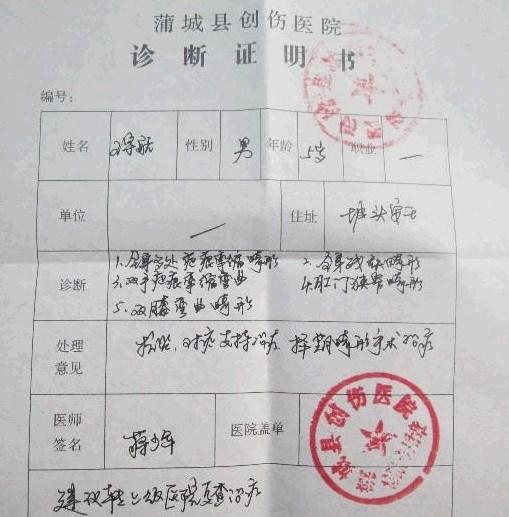 蒲城县创伤医院
诊断证明书
编号：
姓名 性别 男 年龄 5岁 职业 一
单位 一 住址
诊断 1.全身多处疤痕挛缩畸形 2.全身残缺畸形
3.双手疤痕挛缩弯曲 4.肛门狭窄畸形
5.双膝弯曲畸形
处理意见 抗炎、对症支持治疗 择期畸形手术治疗
医师签名 蒋少军 医院盖单
蒲城县创伤医院
建议转上级医院复查治疗